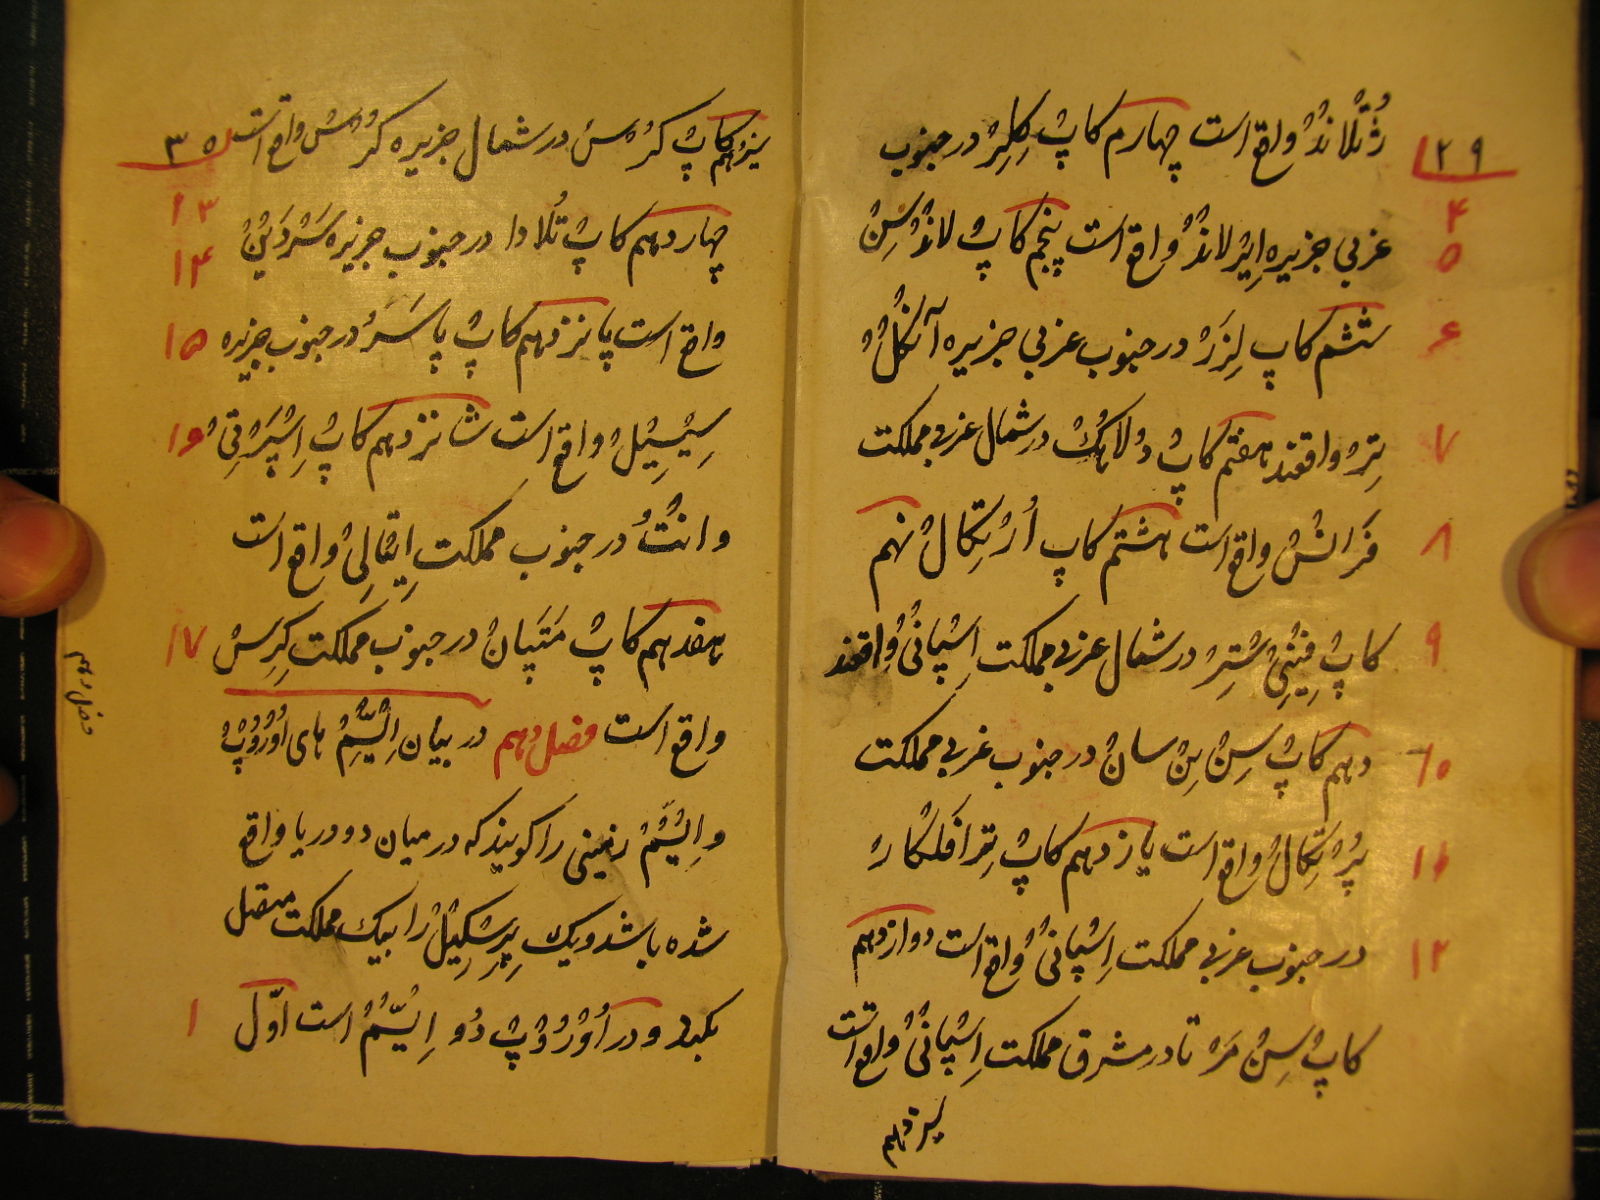 ۲۹
ژتلاند واقع است چهارم کاپ کلیر در جنوب
۴
۵
غربی جزیره ایرلاند واقع است پنجم کاپ لاندسن
۶
ششم کاپ لزرد در جنوب غربی جزیره آنگل
۷
تره واقعند هفتم کاپ دلاهگ در شمال غربی مملکت
۸
فرانس واقع است هشتم کاپ ارتگال نهم
۹
کاپ فینی ستر در شمال غربی مملکت اسپانی واقعند
۱۰
دهم کاپ سن بن سان در جنوب غربی مملکت
۱۱
پرتگال واقع است یازدهم کاپ ترافلگار
۱۲
در جنوب غربی مملکت اسپانی واقع است دوازدهم
کاپ سن مرتا در مشرق مملکت اسپانی واقع است
سیزدهم
۳۰
سیزدهم کاپ کرس در شمال جزیره کرس واقع است
۱۳
چهاردهم کاپ تلادا در جنوب جزیره سردین
۱۴
واقع است پانزدهم کاپ پاسر در جنوب جزیره
۱۵
سیسیل واقع است شانزدهم کاپ اسپرتی
۱۶
وانتو در جنوب مملکت ایتالی واقع است
هفدهم کاپ متپان در جنوب مملکت کرس
۱۷
واقع است فصل دهم در بیان ایسم های اوروپ
فصل دهم
و ایسم زمینی را گویند که در میان دو دریا واقع
شده باشد و یک پرسکیل را بیک مملکت متصل
بکند و در اوروپ دو ایسم است اول
۱